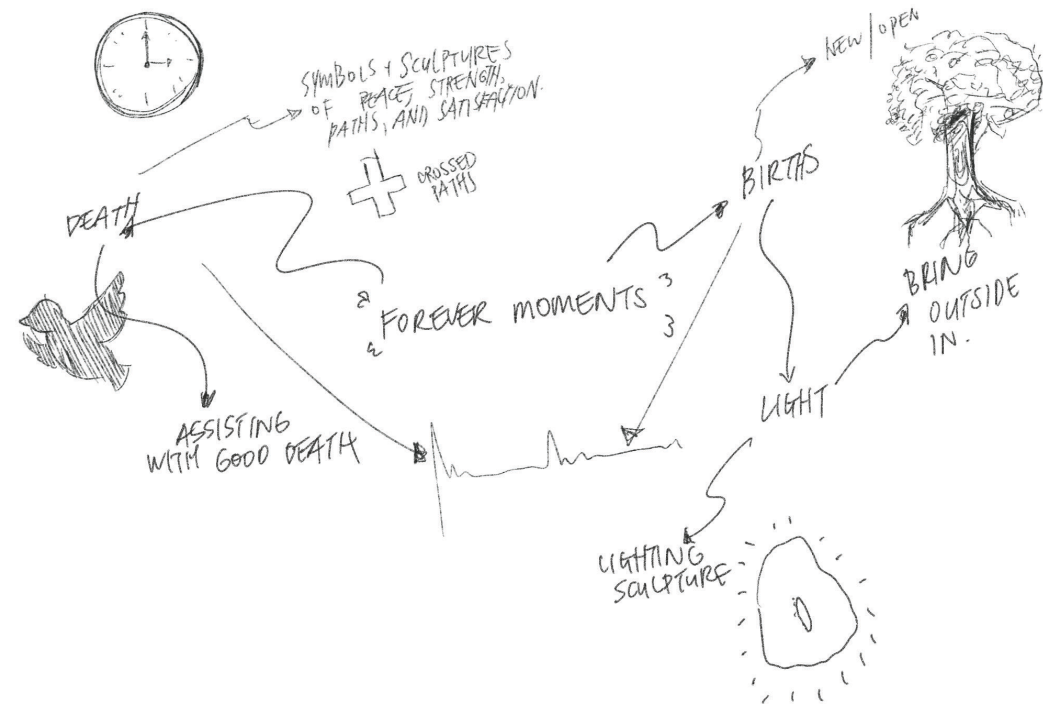 NEW/OPEN
SYMBOLS + SCULPTURES
OF PEACE, STRENGTH,
PATHS, AND SATISFACTION.
CROSSED
PATHS
BIRTHS
DEATH
FOREVER MOMENTS
BRING
OUTSIDE
IN.
LIGHT
ASSISTING
WITH GOOD DEATH
LIGHTING
SCULPTURE